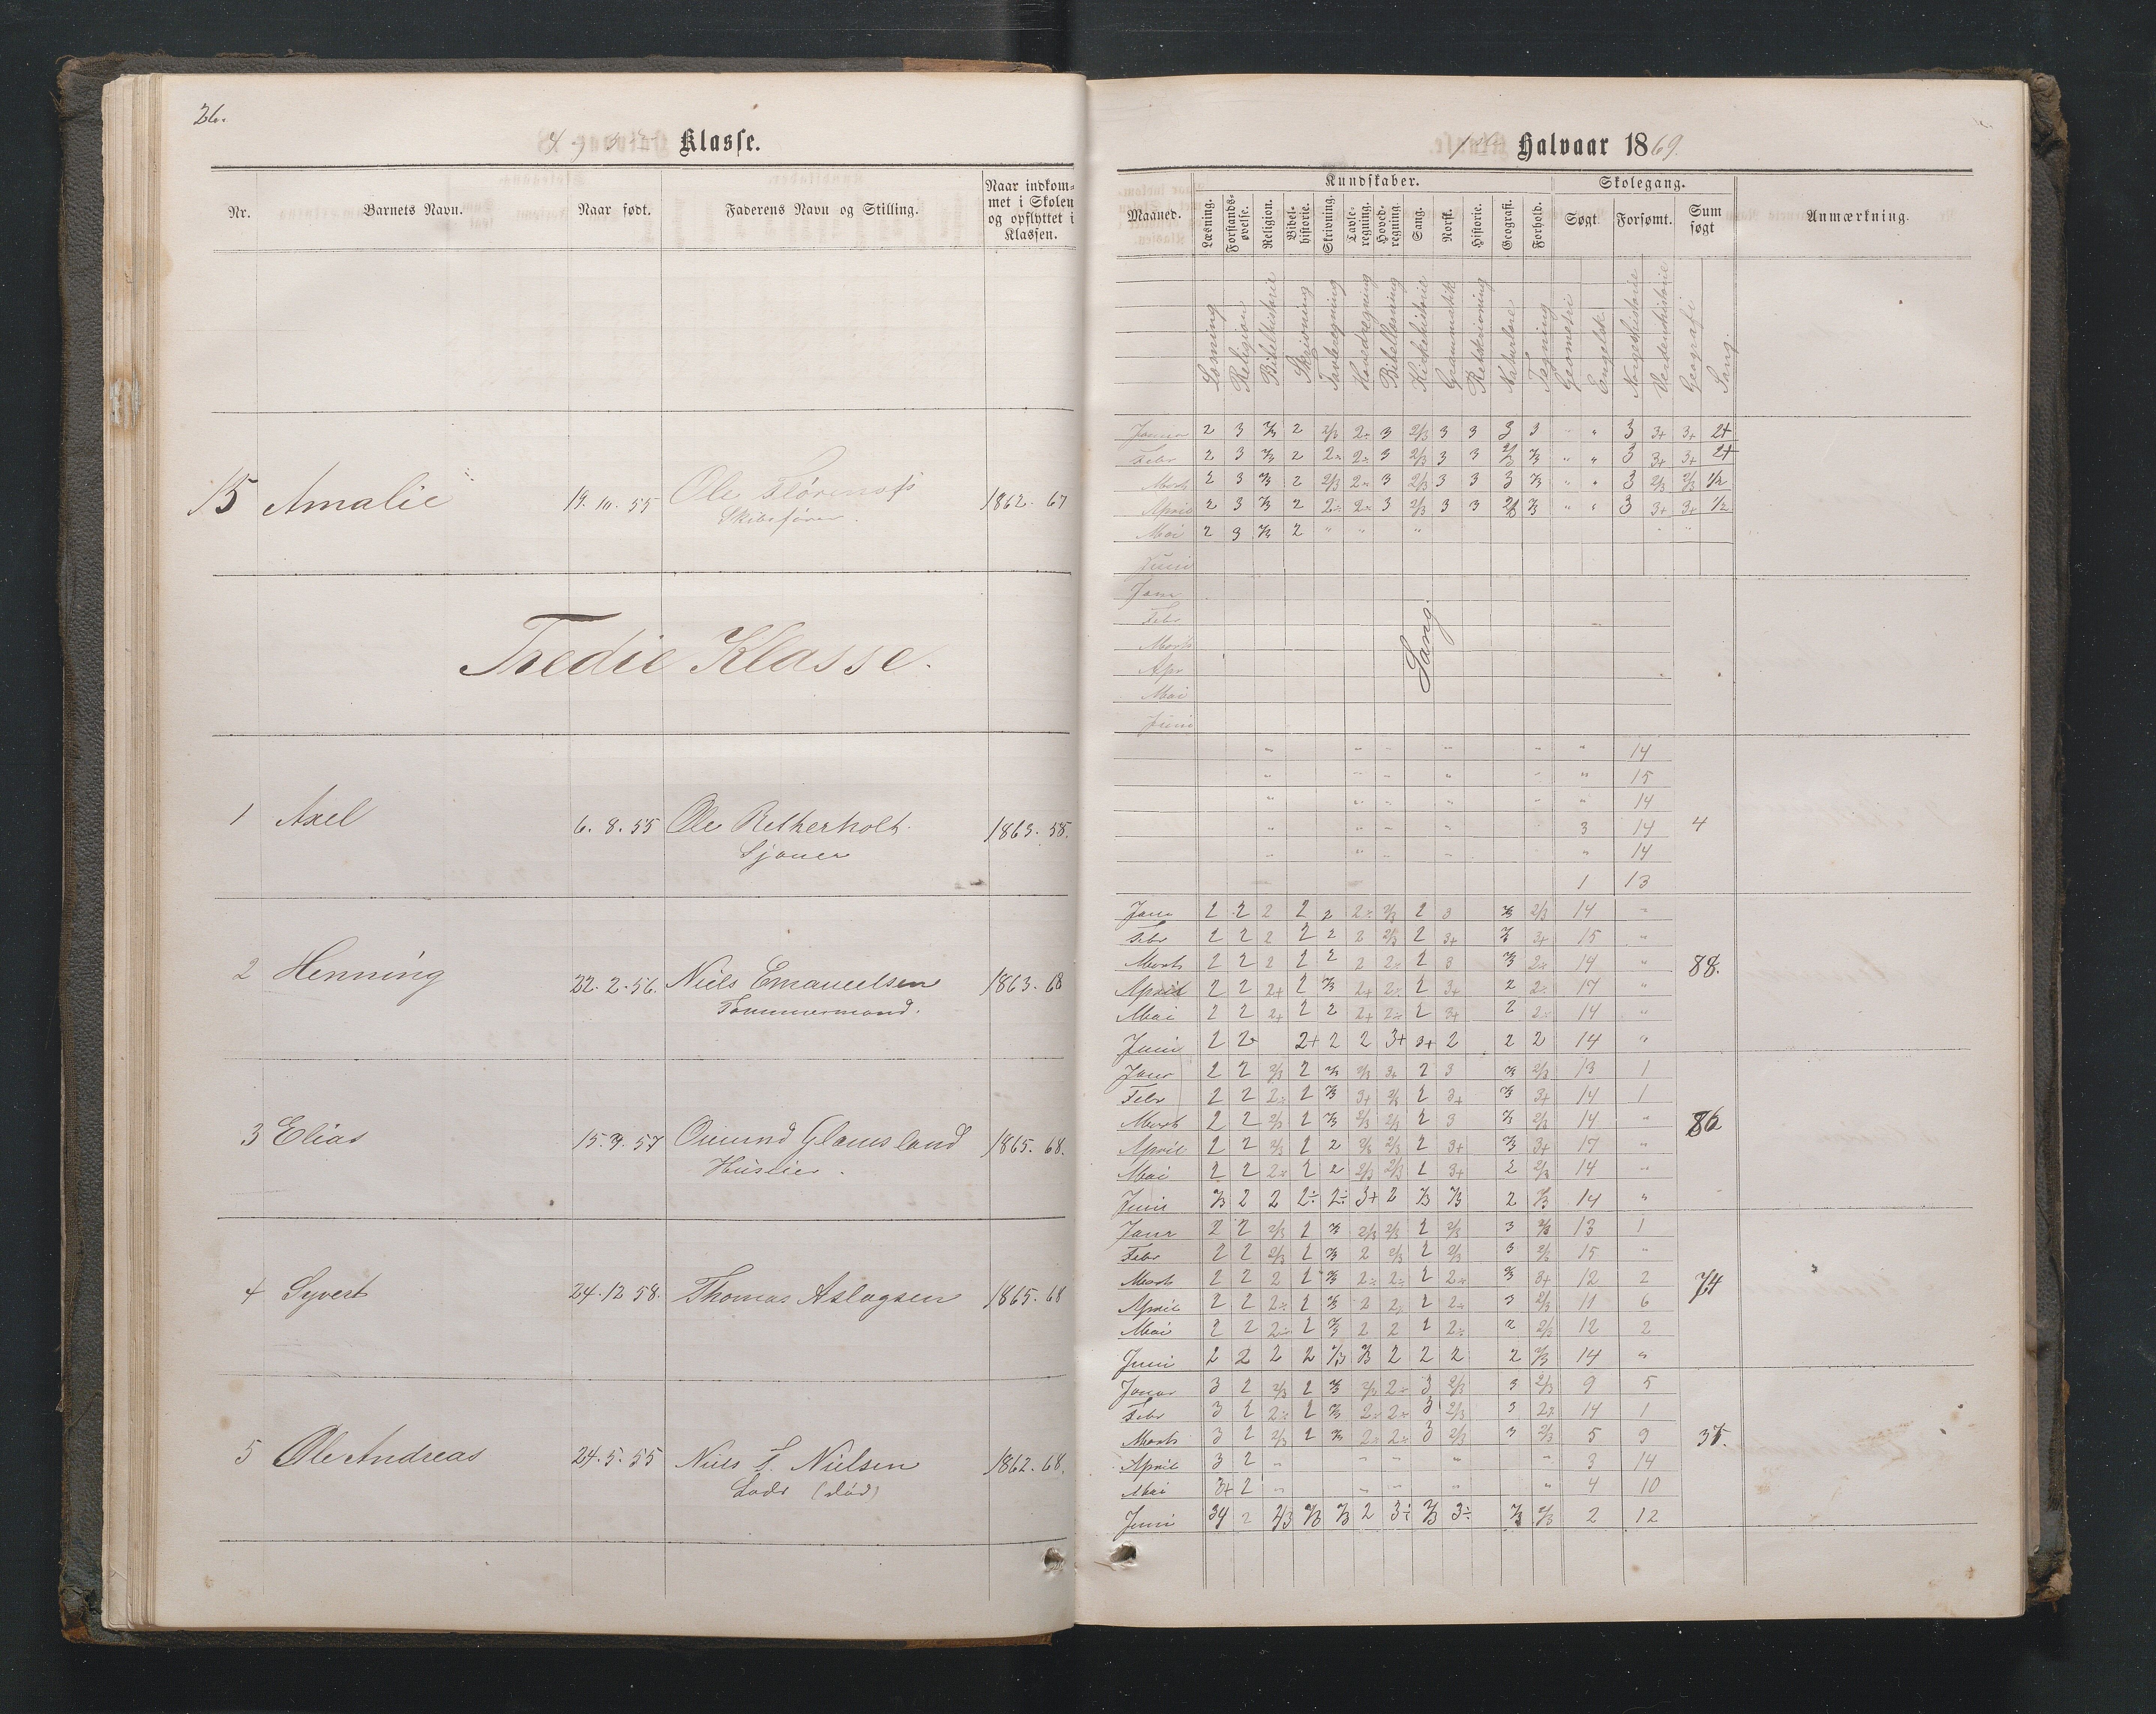 26.
Klasse.
Nr. Barnets Navn. Naar født. Faderens Navn og Stilling. Naar indkom=
met i Skolen
og opflyttet i
Klassen.
15 Amalie 19. 10. 55 Ole 1862. 67
Skibsfører.
Tredie Klasse.
1 Axel 6. 8. 55 Ole 1863. 58.
Sjouer
2 Henning 22. 2. 56. Niels Emanuelsen 1863. 68
Tømmermand.
3 Elias 15. 9. 57 Omund Glamsland 1865. 68.
Huseier.
4 Syvert 24. 12 58. Thomas Aslagsen 1865. 68
5 Ole Andreas 24. 5. 55 Niels S. Nielsen 1862. 68.
Lods (død)
1ste Halvaar 1869.
Kundskaber. Skolegang.
Maaned. Læsning. Forstands-
øvelse. Religion. Bibel-
historie. Skrivning. Tavle-
regning. Hoved-
regning. Sang. Norsk. Historie. Geografi. Forhold. Søgt. Forsømt. Sum
søgt Anmærkning.
Læsning Religion Bibelhistorie Skrivning Tavleregning Hovedregning Bibellæsning Kirkehistorie Grammatik Retskrivning Naturlære Tegning Geometri Engelsk Norgeshistorie Verdenshistorie Geografi Sang.
Januar 2 3 2/3 2 2/3 2÷ 3 2/3 3 3 3 3 " " 3 3+ 3+ 2+
Febr 2 3 2/3 2 2÷ 2÷ 3 2/3 3 3 2/3 2/3 " " 3 3+ 3+ 2+
Marts 2 3 2/3 2 2/3 2÷ 3 2/3 3 3 3 2/3 " " 3 2/3 2/3 1/2
April 2 3 2/3 2 2÷ 2÷ 3 2/3 3 3 2/3 2/3 " " 3 3+ 3+ 1/2
Mai 2 3 2/3 2 " " "
Juni
Jan
Febr
Marts
Apr
Mai
Juni
Sang.
" " " " " " 14
" " " " " " 15
" " " " " " 14
" " " " " 3 14 4
" " " " " " 14
1 13
Janr 2 2 2 2 2 2÷ 2/3 2 3 2/3 2/3 14 "
Febr 2 2 2 2 2 2 2/3 2 3+ 2/3 3+ 15 "
Marts 2 2 2 2 2 2 2÷ 2 3 2/3 2÷ 14 " 88.
April 2 2 2+ 2 2/3 2+ 2÷ 2 3+ 2 2÷ 17 "
Mai 2 2 2+ 2 2 2+ 2÷ 2 3+ 2 2÷ 14 "
Juni 2 2÷ 2+ 2 2 3+ 3+ 2 2 2 14 "
Janr 2 2 2/3 2 2/3 2/3 3+ 2 3 2/3 2/3 13 1
Febr 2 2 2÷ 2 2/3 3+ 2/3 2 3+ 2/3 3+ 14 1
Marts 2 2 2/3 2 2/3 2/3 2/3 2 3 2/3 2/3 14 " 86
April 2 2 2/3 2 2 2/3 2/3 2 3+ 2/3 3+ 17 "
Mai 2 2 2÷ 2 2 2/3 2/3 2 3+ 2 2/3 14 "
Juni 2/3 2 2 2÷ 2÷ 3+ 2 2/3 2/3 2 2/3 14 "
Janr 2 2 2/3 2 2/3 2/3 2/3 2 2/3 3 2/3 13 1
Febr 2 2 2/3 2 2/3 2 2/3 2 2/3 3 2/3 15 "
Marts 2 2 2 2 2/3 2÷ 2÷ 2 2÷ 2/3 3+ 12 2 74
April 2 2 2÷ 2 2/3 2 2÷ 2 2÷ 3 2/3 11 6
Mai 2 2 2÷ 2 2/3 2 2 2 2÷ 2 2/3 12 2
Juni 2 2 2 2 2/3 2/3 2 2 2 2 2/3 14 "
Janar 3 2 2/3 2 2/3 2/3 2÷ 3 2/3 3 2/3 9 5
Febr 3 2 2÷ 2 2/3 2÷ 2÷ 3 2/3 3 2÷ 14 1
Marts 3 2 2/3 2 2/3 2÷ 2÷ 3 2/3 3 2/3 5 9 37.
April 3 2 " " " " " 3 14
Mai 3+ 2 " " " " " 4 10
Juni 3/4 2 2/3 2/3 2/3 2 3÷ 2/3 3÷ 2/3 2/3 2 12